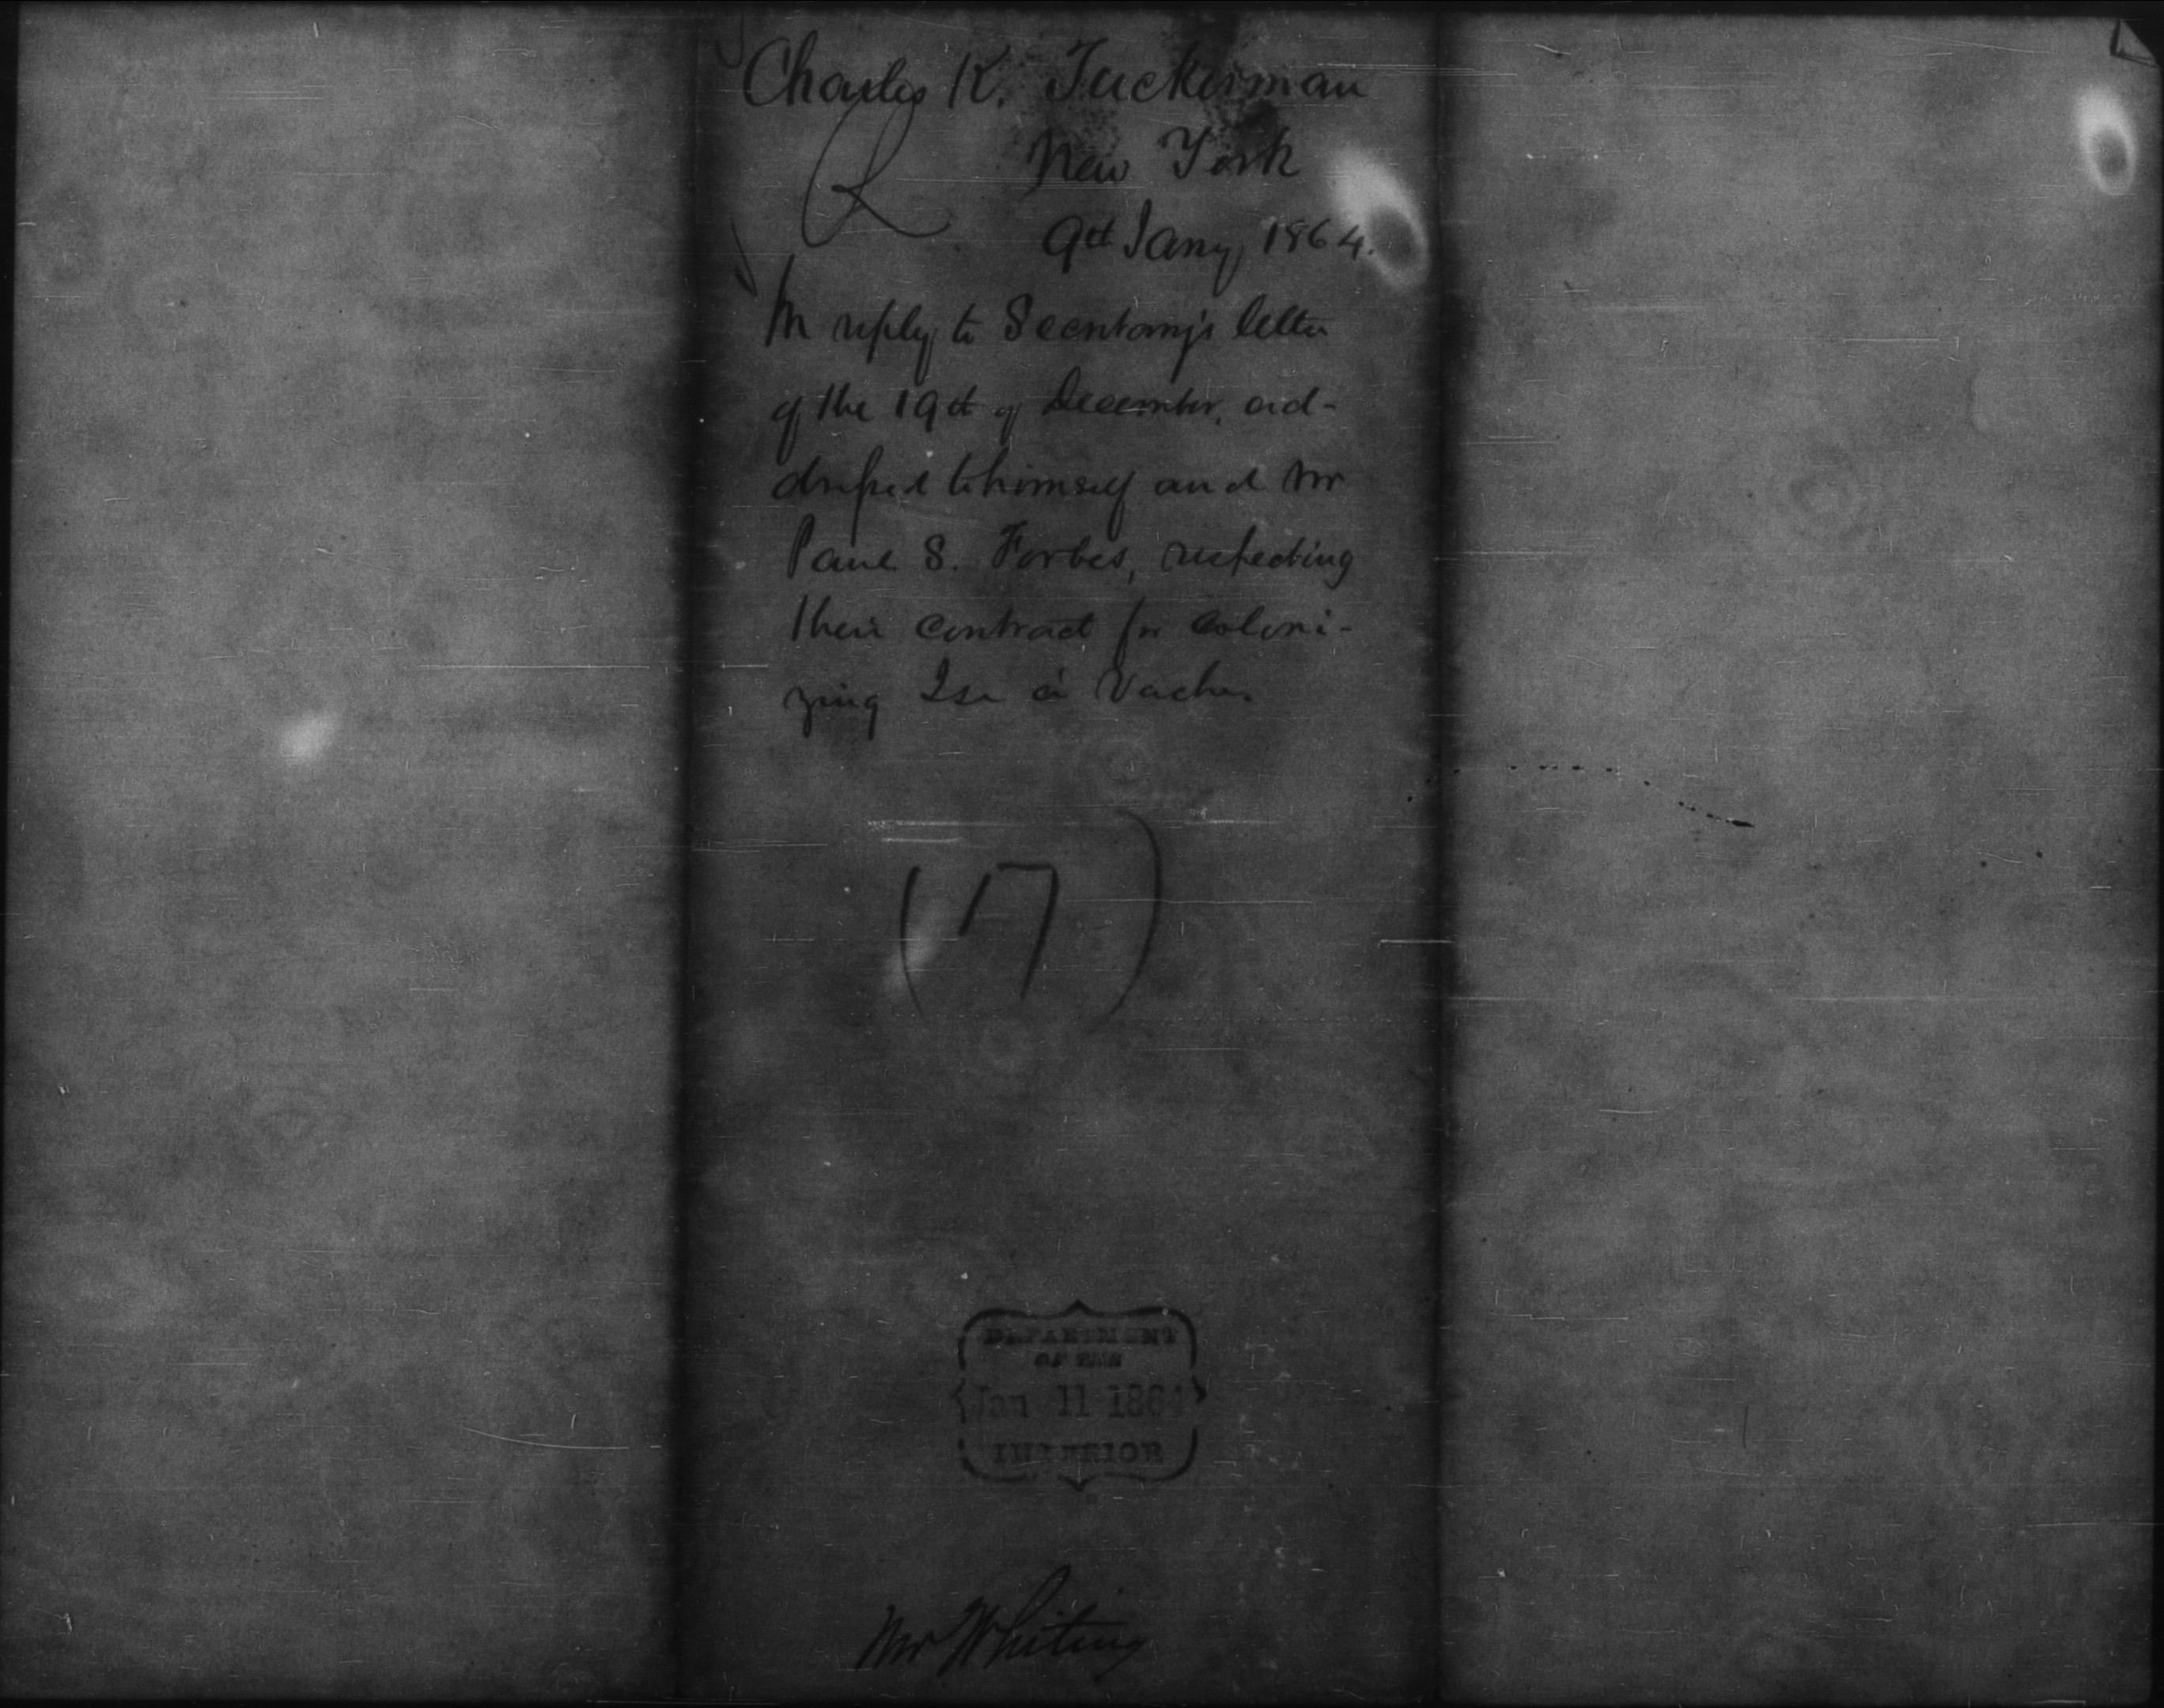 Charles K. Tuckerman
R
New York
9th Jany 1864.
In reply to Secretary's letter
of the 19th of December, ad-
dressed to himself and Mr
Paul S. Forbes, respecting
their contract for coloni-
zing Isle à Vache.
(17)
DEPARTMENT
OF THE
Jan 11 1864
INTERIOR
Mr Whiting